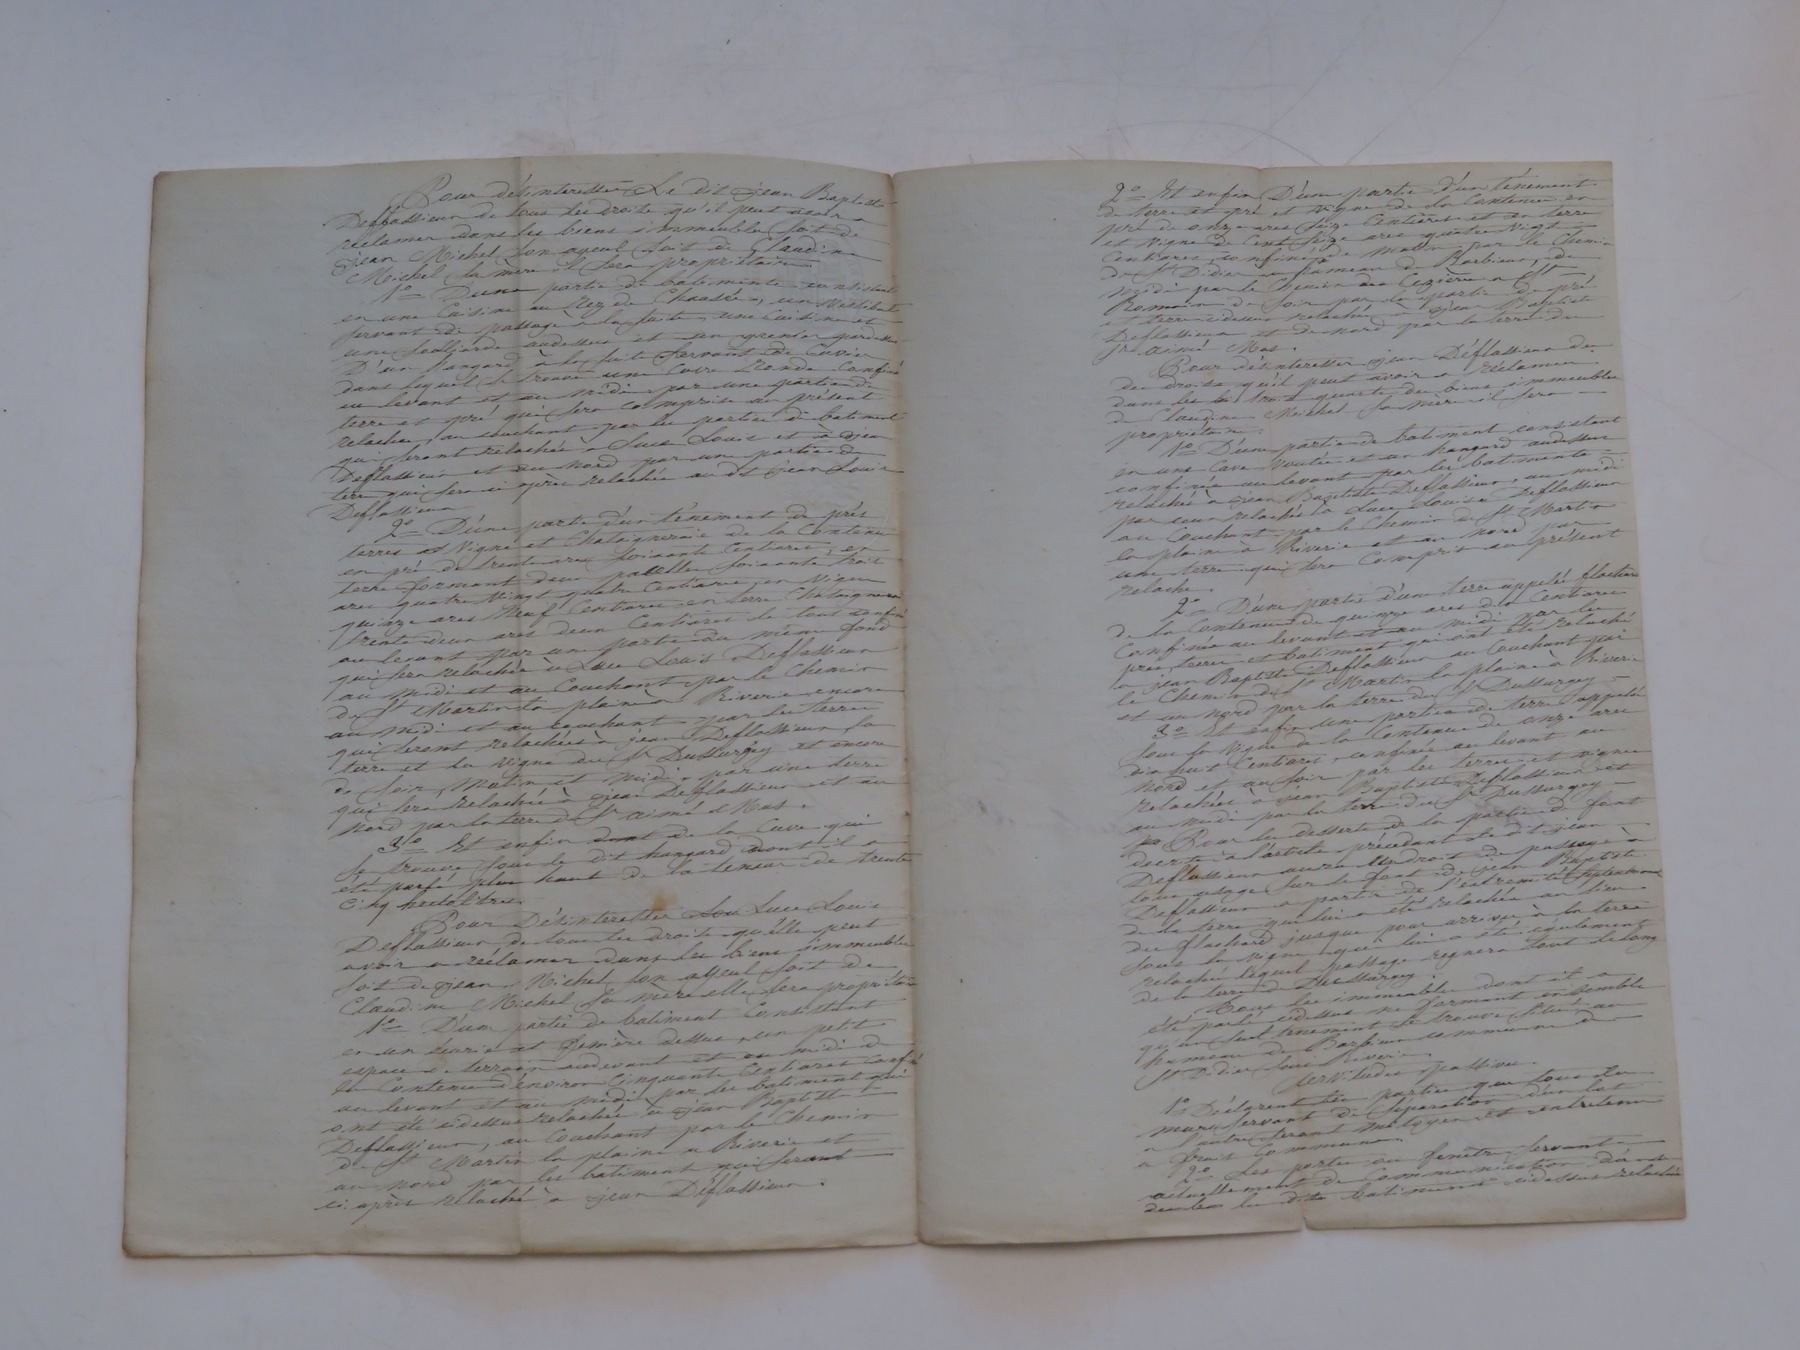 Pour désinteresser Le dit jean Baptiste
Deflassieux de tous les droits qu'il peut avoir a
réclamer dans les biens immeubles soit de
jean Michel son ayeul soit de Claudine
Michel sa mère il sera propriétaire
1o D'une partie de batiments consistant
en une Cuisine au Rez de Chaussée, un Vestibule
servant de passage à la suite, une cuisine et
une souillarde audessus et un grenier pardessus
D'un hangard à la suite servant de Cuvier
dans lequel se trouve une Cuve Ronde Confiné
au levant et au midi par une partie de
terre et pré qui sera comprise au présent
relaché, au couchant par les parties de batiment
qui seront relachées à Luce Louis et à jean
Deflassieux et au nord par une partie de
terre qui sera ci après relachée au dit jean Louis
Deflassieux
2o D'une partie d'un tènement de prés
terres et Vigne et Chataigneraie de la Contenue
en pré de trente ares soixante Centiares, en
terre formant deux parcelles soixante trois
ares quatre Vingt quatre Centiares, en Vigne
quinze ares Neuf Centiares en terre Chataigneraie
trente deux ares deux Centiares le tout confiné
au levant par une partie du même fond
qui sera relachée à Luce Louis Deflassieux
au midi et au Couchant par le Chemin
de St Martin la plaine à Riverie encore
au midi et au couchant par les terres
qui seront relachées à jean Deflassieux, la
terre et la vigne du Sr Dussurgey et encore
de soir, Matin et midi par une terre
qui sera relachée à jean Deflassieux et au
Nord par la terre du Sr aimé Mas.
3o Et enfin de la Cuve qui
se trouve sous le dit hangard dont il a
été parlé plus haut de la teneur de trente
cinq hectolitres
Pour Désinteresser Luce Louis
Deflassieux de tous les droits qu'elle peut
avoir a réclamer dans les biens immeubles
soit de jean Michel son ayeul soit de
Claudine Michel sa mère elle sera propriétaire
1o D'une partie de batiment Consistant
en un écurie et fenière dessus, un petit
espace de terrain audevant et au midi de
la Contenue d'environ Cinquante Centiares Confiné
au levant et au midi par les batiments qui
ont été cidessus relachés à jean Baptiste
Deflassieux, au Couchant par le Chemin
de St Martin la plaine a Riverie et
au nord par les batiment qui seront
ci après relachés à jean Deflassieux.
2o Et enfin D'une partie d'un tènement
de terre et pré et vigne de la Contenue en
pré de onze ares seize Centiares et en terre
et vigne de Cent seize ares quatre Vingt
Centiares, confinée de matin par le Chemin
de St Didier au hameau de Barbieux, de
midi par le Chemin de Cezière a St
Romain de soir par la partie de pré
et terre cidessus relachée à jean Baptiste
Deflassieux et de nord par la terre du
Sr aimé Mas.
Pour désinteresser jean Déflassieux des
droits qu'il peut avoir a réclamer
dans les trois quarts des biens immeubles
de Claudine Michel sa mère il sera
propriétaire:
1o D'une partie de batiment consistant
en une Cave Voutée et un hangard audessus
confinée au levant par les batiments
relachés à jean Baptiste Deflassieux, au midi
par ceux relachés à Luce Louise Deflassieux
au Couchant par le Chemin de St Martin
la plaine à Riverie et au nord par
une terre qui sera Compris au présent
relaché.
2o D'une partie d'une terre appelée flachard
de la Contenue de quinze ares dix Centiares
Confinée au levant et au midi par les
prés, terres et batiment qui ont été relachés
a jean Baptiste Deflassieux au Couchant par
le Chemin de St Martin la plaine à Riverie
et au nord par la terre du Sr Dussurgey
3o Et enfin une partie de terre appelée
sous la Vigne de la Contenue de onze ares
dix huit Centiares, confinée au levant au
nord et au soir par les terres et vignes
relachées à jean Baptiste Deflassieux et
au midi par la terre du Sr Dussurgey
Pour la desserte de la partie de font
décrite à l'article précédent le dit jean
Deflassieux aura un droit de passage à
tous usage sur le font de jean Baptiste
Deflassieux a partir de l'extremité septentrionale
de la terre qui lui a été relachée au lieu
du flachard jusque pour arriver à la terre
sous la Vigne qui lui a été egalement
relachée lequel passage regnera tout le long
de la terre de Dussurgey.
Tous les immeubles dont il a
été parlé cidessus ne forment ensemble
qu'un seul tènement se trouve situé au
hameau de Barbieux commune de
St Didier sous Riverie.
Servitudes passives.
1o Déclarent les parties que tous les
murs servant de séparation d'un lot
a l'autre seront mitoyens et entretenus
a frais Communs.
2o Les portes ou fenêtres servant
actuellement de Communication dans
les dits batiments cidessus relachés